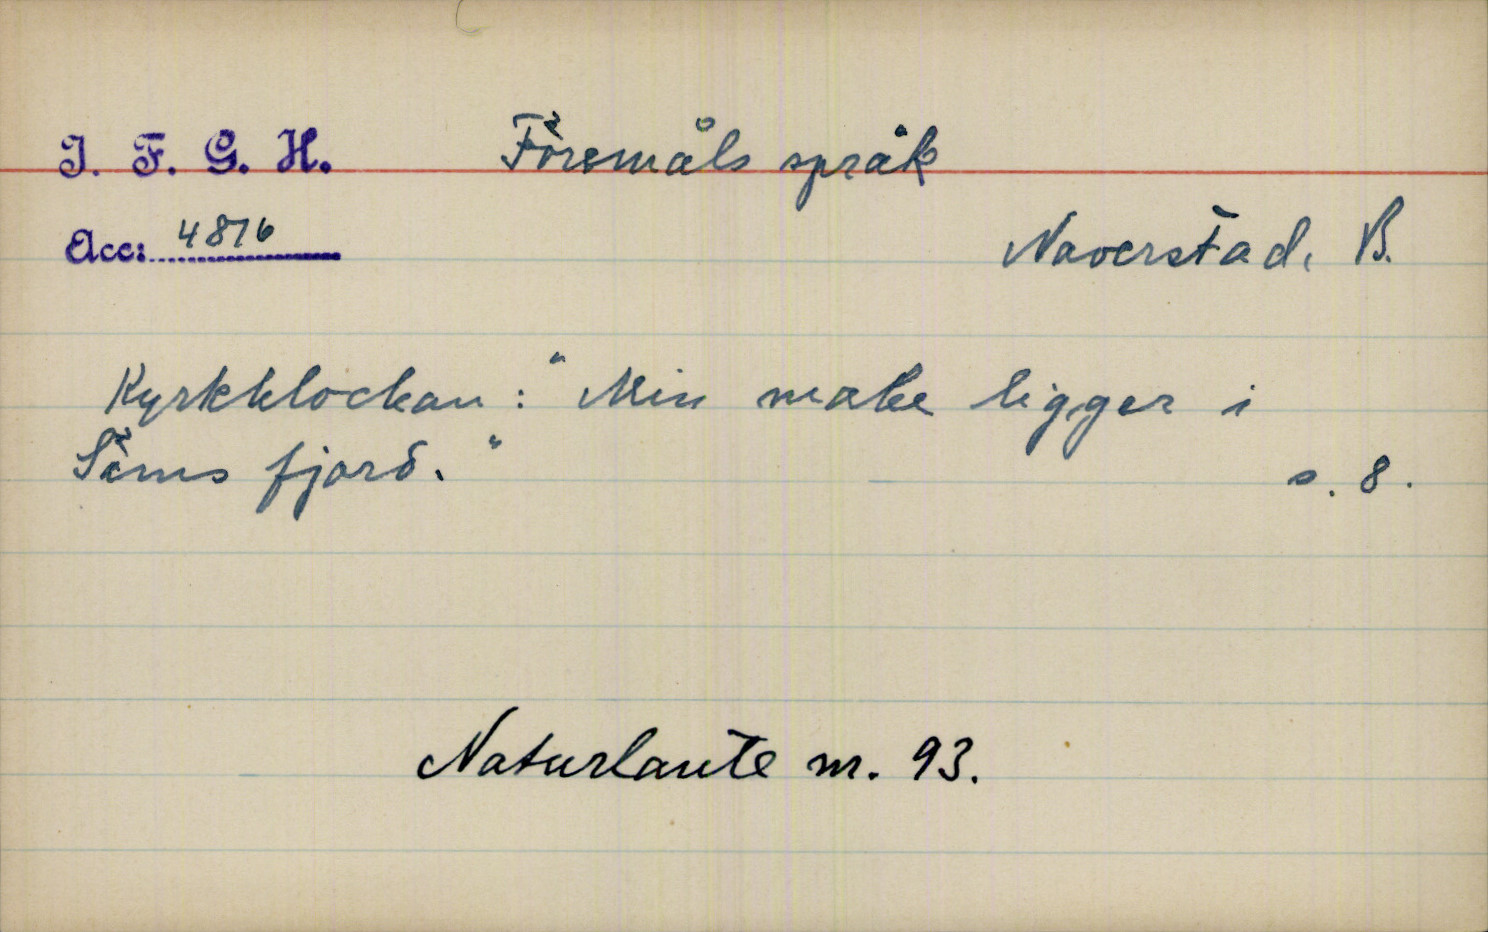 I. F. G. H.
Föremåls språk
Acc: 4876
Naverstad, B.
Kyrkklockan: "Min make ligger i
Söms fjord."
s. 8.
Naturlaute nr. 93.